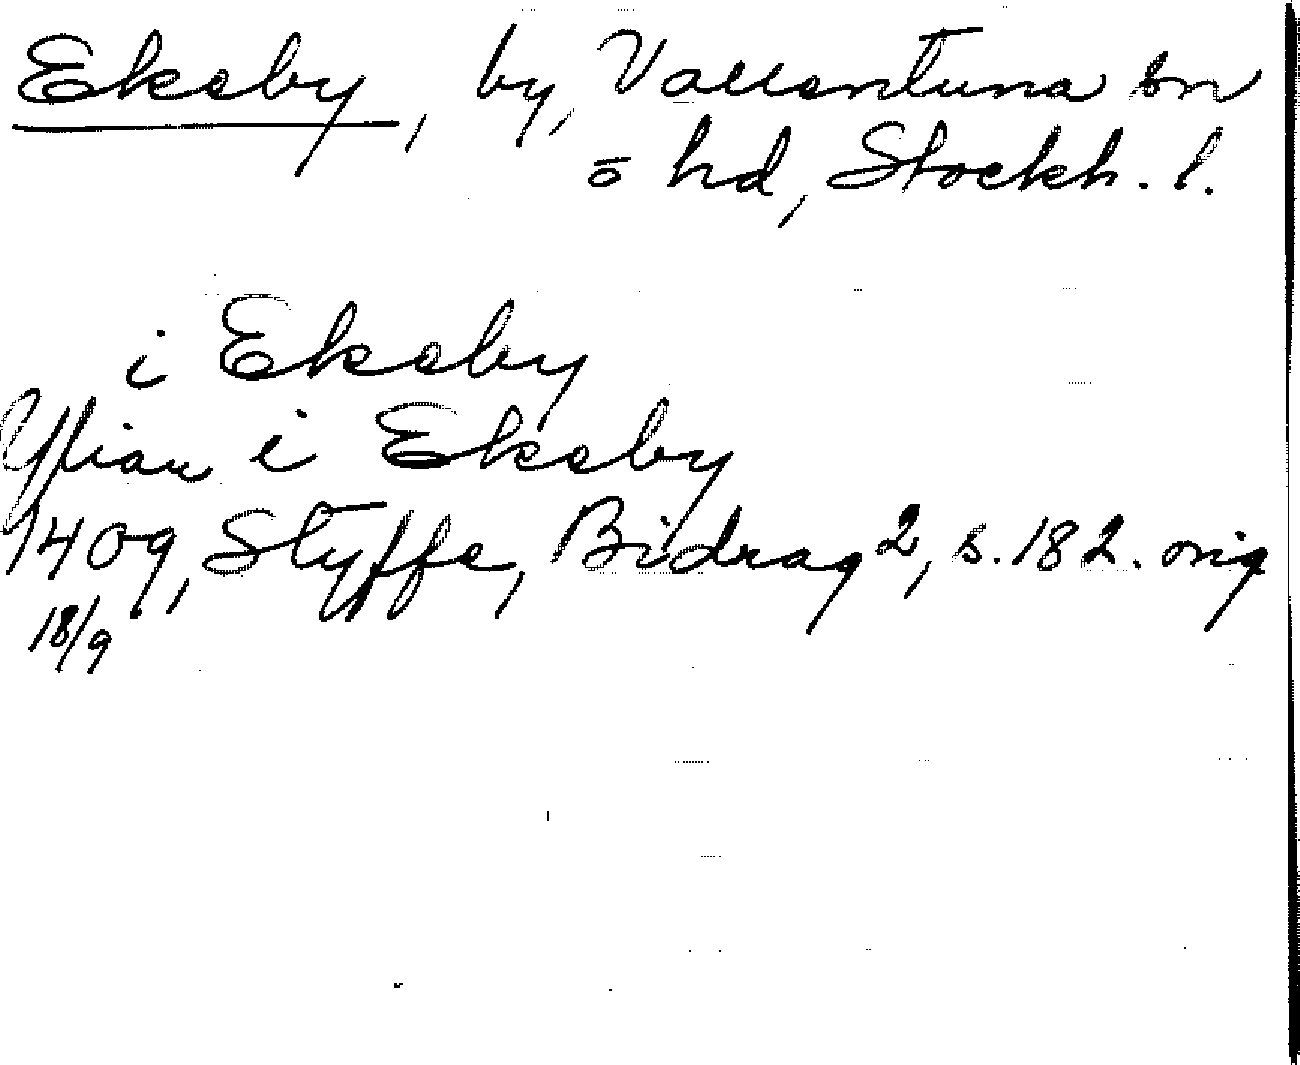 Eksby, by, Vallentuna sn
o hd, Stockh. l.
i Eksby
i Eksby
1409, Styffe, Bidrag 2, s. 182. orig
18/9